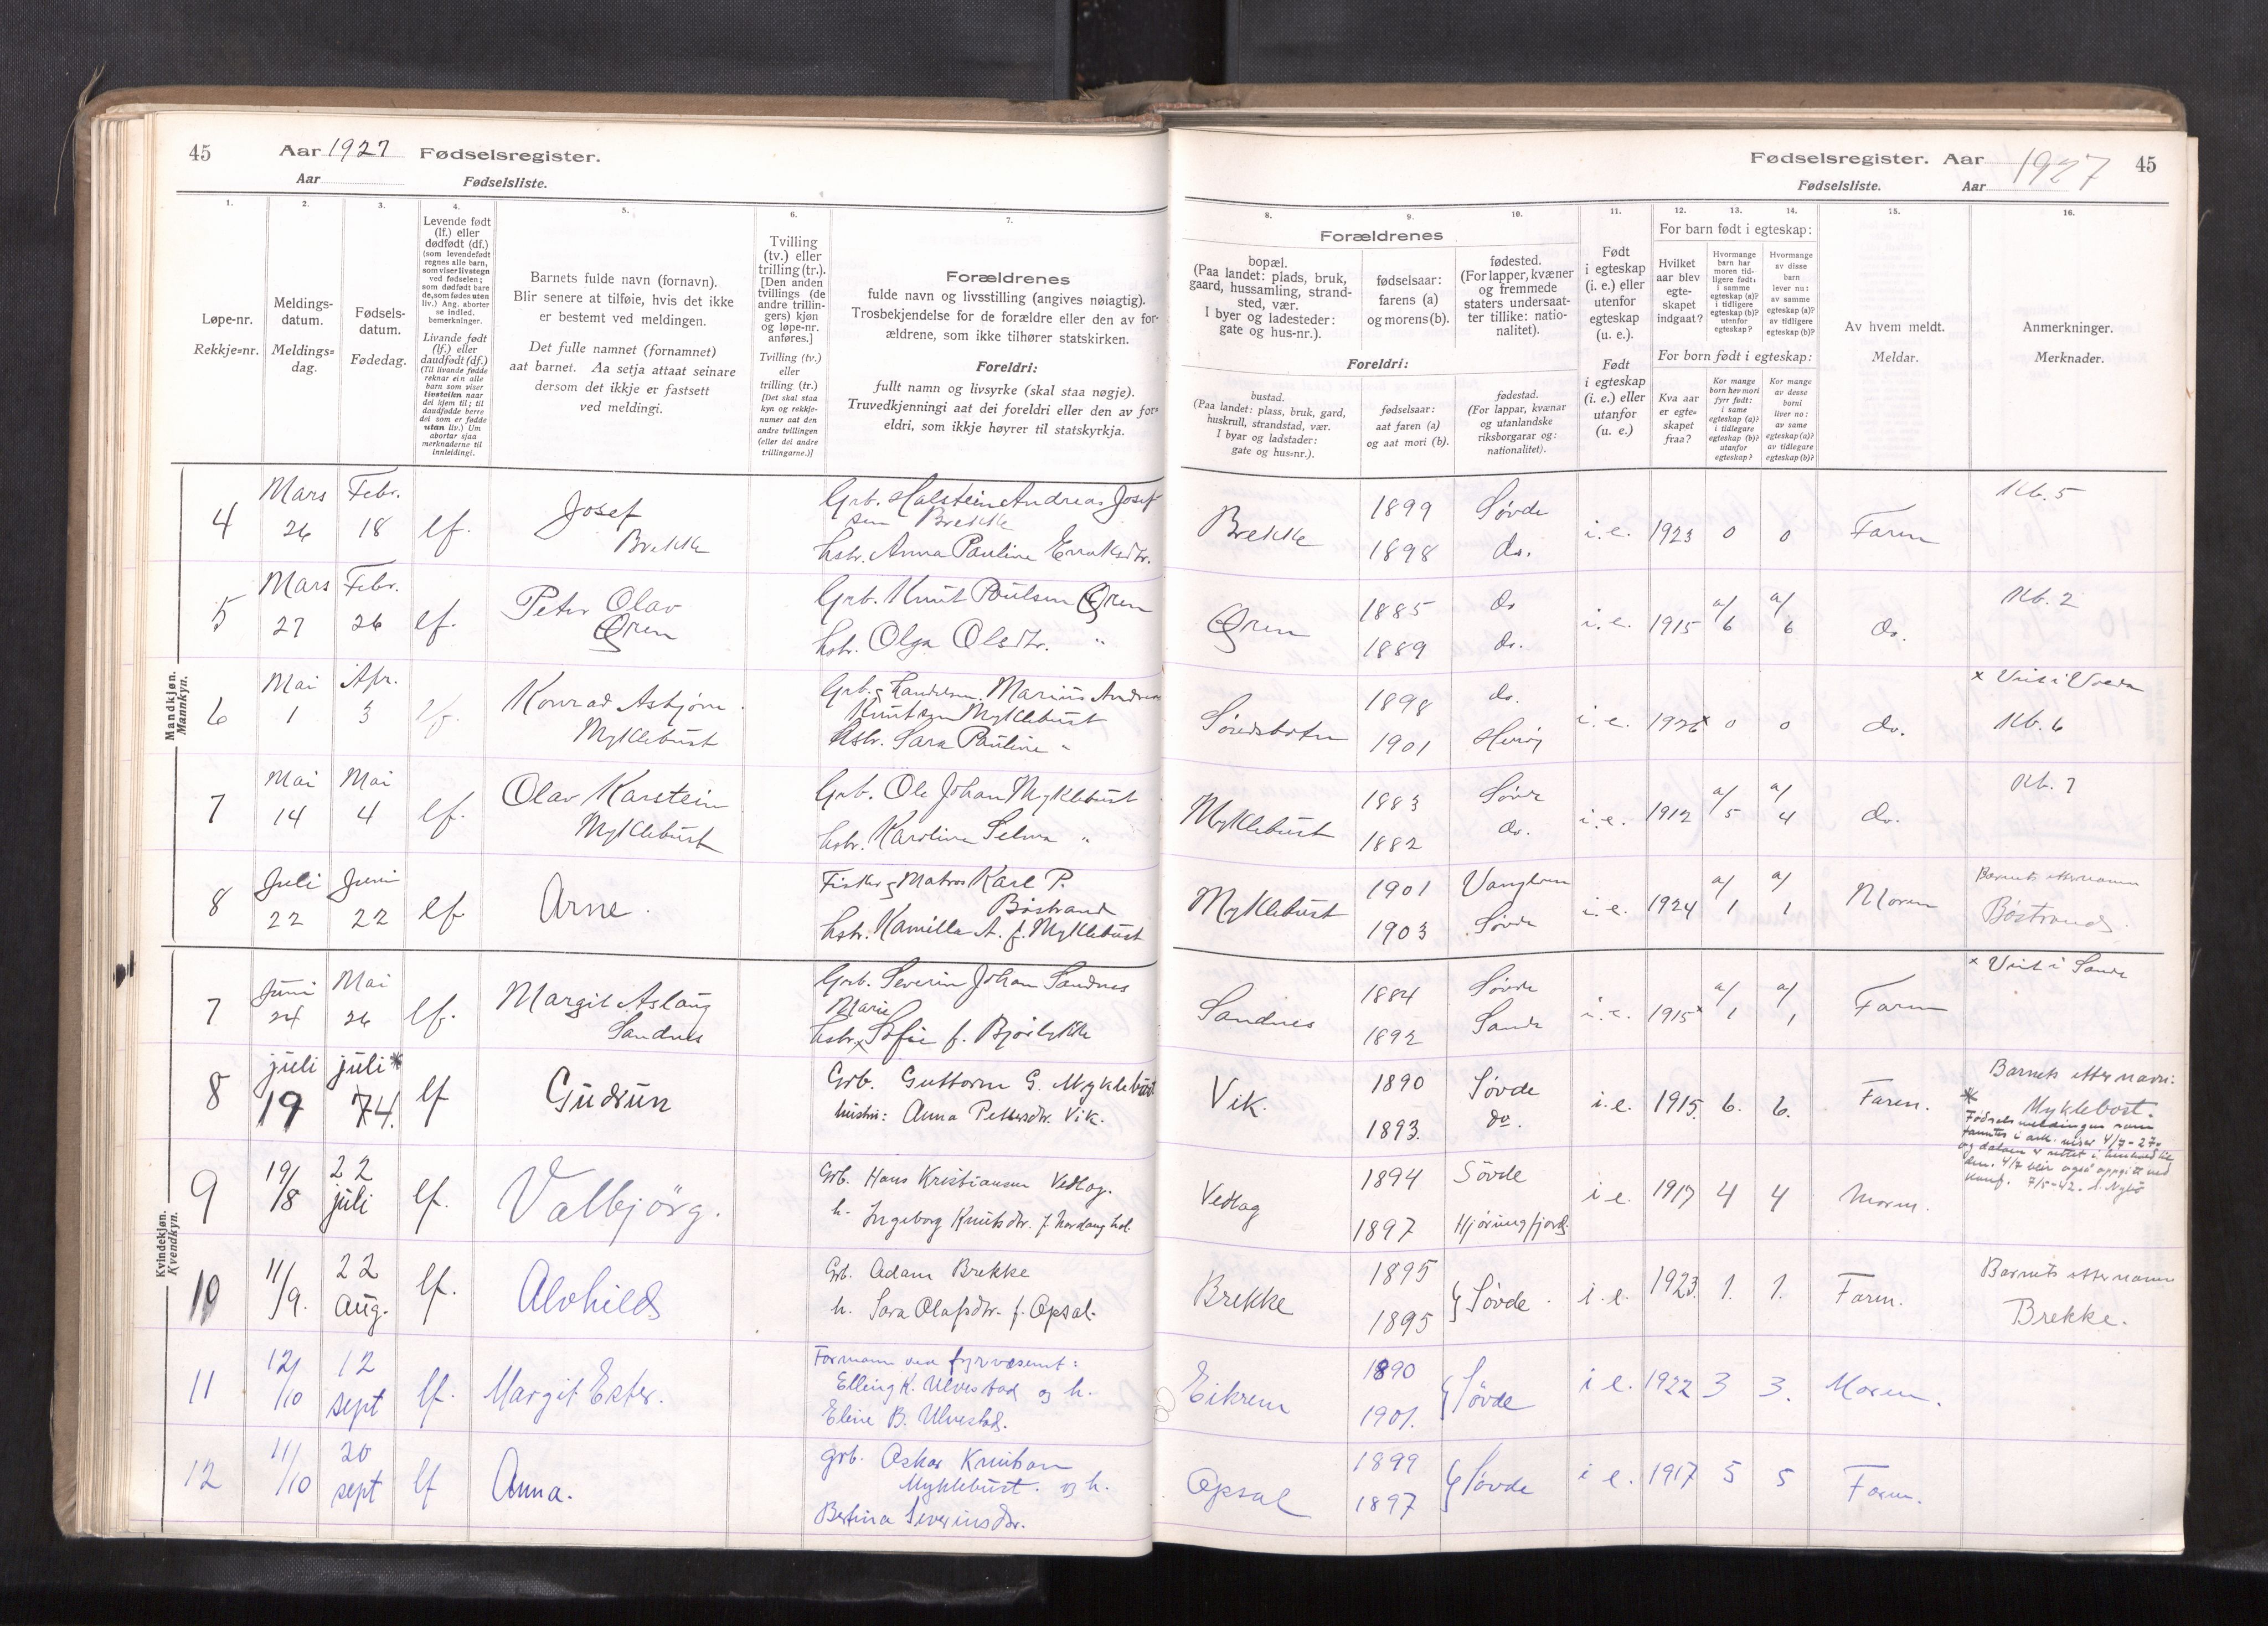 45
Aar 1927 Fødselsregister.
Aar Fødselsliste.
1.
2.
3.
4.
5.
6.
7.
Løpe-nr.
Rekkje=nr.
Meldings-
datum.
Meldings=
dag.
Fødsels-
datum.
Fødedag.
Levende født
(lf.) eller
dødfødt (df.)
(som levendefødt
regnes alle barn,
som viser livstegn
ved fødselen;
som dødfødt bare
de, som fødes uten
liv.) Ang. aborter
se indled.
bemerkninger.
Livande født
(lf.) eller
daudfødt (df.)
(Til livande fødde
reknar ein alle
barn som viser
livsteikn naar
dei kjem til; til
daudfødde berre
dei som er fødde
utan liv.) Um
abortar sjaa
merknaderne til
innleidingi.
Barnets fulde navn (fornavn).
Blir senere at tilføie, hvis det ikke
er bestemt ved meldingen.
Det fulle namnet (fornamnet)
aat barnet. Aa setja attaat seinare
dersom det ikkje er fastsett
ved meldingi.
Tvilling
(tv.) eller
trilling (tr.).
[Den anden
tvillings (de
andre trillin-
gers) kjøn
og løpe-nr.
anføres.]
Tvilling (tv.)
eller
trilling (tr.)
[Det skal staa
kyn og rekkje-
numer aat den
andre tvillingen
(eller dei andre
trillingarne.)]
Forældrenes
fulde navn og livsstilling (angives nøiagtig).
Trosbekjendelse for de forældre eller den av for-
ældrene, som ikke tilhører statskirken.
Foreldri:
fullt namn og livsyrke (skal staa nøgje).
Truvedkjenningi aat dei foreldri eller den av for=
eldri, som ikkje høyrer til statskyrkja.
Mandkjøn.
Mannkyn.
4
Mars
26
Febr.
18
lf.
Josef
Brekke
Grb. Halstein Andreas Josef
sen Brekke
hstr. Anna Pauline
5
Mars
27
Febr.
26
lf.
Peter Olav
Øren
Grb. Knut Paulsen Øren
hstr. Olga Olsdtr. "
6
Mai
1
Apr.
3
lf.
Konrad Asbjørn
Myklebust
Grb. Marius Andreas
Knutsen Myklebust
hstr. Sara Pauline "
7
Mai
14
Mai
4
lf.
Olav Karstein
Myklebust
Grb. Ole Johan Myklebust
hstr. Karoline Selma "
8
Juli
22
Juni
22
lf
Arne.
Fisker og Matros Karl P.
Böstrand
hstr. Kamilla A. f. Myklebust
Kvindekjøn.
Kvendkyn.
7
Juni
24
Mai
26
lf.
Margit Aslaug
Sandnes
Grb. Severin Johan Sandnes
Marie
hstr. x Sofie f.
8
juli
19
juli *
4.
lf
Gudrun
Grb. Guttorm G. Myklebust
hustru: Anna Pettersdtr. Vik.
9
19/8
22
juli
lf.
Valbjörg.
Grb. Hans Kristiansen Vedlag.
h. Ingeborg Knutsdtr. f.
10
11/9.
22
Aug.
lf.
Alvhild
Grb. Adam Brekke
h. Sara Olafsdtr. f. Opsal.
11
12/10
12
sept
lf.
Margit Ester.
Formann ved fyrvæsenet:
Elling K. Ulvestad og h.
Eline B. Ulvestad.
12
11/10
20
sept
lf
Anna.
grb. Oskar Knutsen
Myklebust. og h.
Bertina Severinsdtr.
Fødselsregister. Aar 1927 45
Fødselsliste. Aar
8.
9.
10.
11.
12.
13.
14.
15.
16.
Forældrenes
bopæl.
(Paa landet: plads, bruk,
gaard, hussamling, strand-
sted, vær.
I byer og ladesteder:
gate og hus-nr.).
fødselsaar:
farens (a)
og morens (b).
fødested.
(For lapper, kvæner
og fremmede
staters undersaat-
ter tillike: natio-
nalitet).
Foreldri:
bustad.
(Paa landet: plass, bruk, gard,
huskrull, strandstad, vær.
I byar og ladstader:
gate og hus=nr.).
fødselsaar:
aat faren (a)
og aat mori (b).
fødestad.
(For lappar, kvænar
og utanlandske
riksborgarar og:
nationalitet).
Født
i egteskap
(i. e.) eller
utenfor
egteskap
(u. e.).
Født
i egteskap
(i. e.) eller
utanfor
(u. e.)
For barn født i egteskap:
Hvilket
aar blev
egte-
skapet
indgaat?
Hvormange
barn har
moren tid-
ligere født:
i samme
egteskap (a)?
i tidligere
egteskap (b)?
utenfor
egteskap?
Hvormange
av disse
barn
lever nu:
av samme
egteskap (a)?
av tidligere
egteskap (b)?
For born født i egteskap:
Kva aar
er egte=
skapet
fraa?
Kor mange
born hev mori
fyrr født:
i same
egteskap (a)?
i tidlegare
egteskap (b)?
utanfor
egteskap?
Kor mange
av desse
borni
liver no:
av same
egteskap (a)?
av tidlegare
egteskap (b)?
Av hvem meldt.
Meldar.
Anmerkninger.
Merknader.
Brekke
1899
1898
Søvde
do.
i. e.
1923
0
0
Faren
Kb. 5
Øren
1885
1889
do
do.
i. e.
1915
a/6
a/6
do.
Kb. 2
1898
1901
do.
i. e.
1926 x
0
0
do.
x Viet i Volda
Kb. 6
Myklebust
1883
1882
Søvde
do.
i. e.
1912
a/5
a/4
do.
Kb. 7
Myklebust
1901
1903
Søvde
i. e.
1924
a/1
a/1
Moren
Barnets etternavn
Böstrand.
Sandnes
1884
1892
Søvde
Sande
i. e.
1915 x
a/1
a/1
Faren
x Viet i Sande
Vik.
1890
1893.
Søvde
do.
i. e.
1915.
6.
6.
Faren.
Barnets etternavn:
* Myklebost.
Fødselsmeldingen som
fanntes i ark. viser 4/7-27.
og datoen er rettet i
4/7 blir også oppgitt ved
konf. 7/5-42.
Vedlag
1894
1897
Sövde
Hjørungfjord
i e.
1917
4
4
Moren.
Brekke
1895
1895
Søvde.
i. e.
1923.
1.
1.
Faren.
Barnets etternavn
Brekke.
Eikrem
1890
1901.
Søvde
i e.
1922
3
3.
Moren.
Opsal
1899
1897
Søvde
i e.
1917
5
5
Faren.